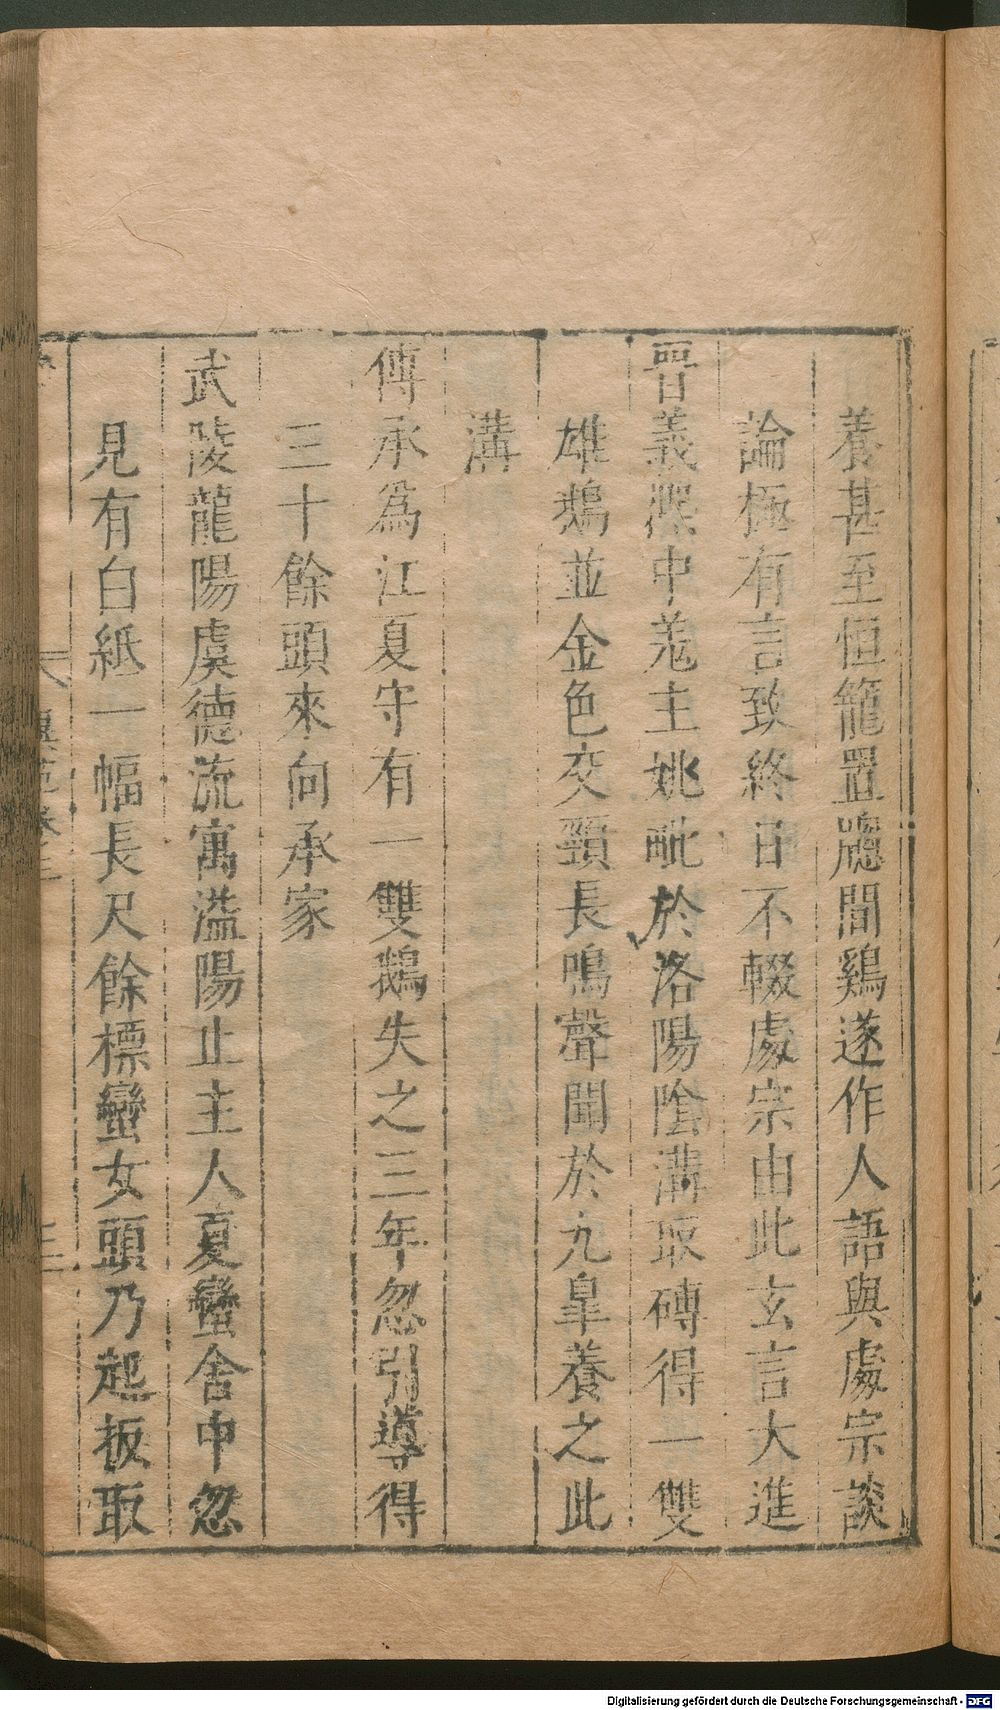 養甚至恒籠置牕間鷄遂作人語與處宗談
論極有言致終日不輟處宗由此玄言大進
晉義熈中羗主姚毗於洛陽陰溝取磚得一雙
雄鵝並金色交頸長鳴聲聞於九臯養之此
溝
傅承為江夏守有一雙鵝失之三年忽引導得
三十餘頭來向承家
武陵龍陽虞德流寓溢陽止主人夏蠻舍中忽
見有白紙一幅長尺餘標蠻女頭乃起扳取
異苑卷三
Digitalisierung gefördert durch die Deutsche Forschungsgemeinschaft - DFG